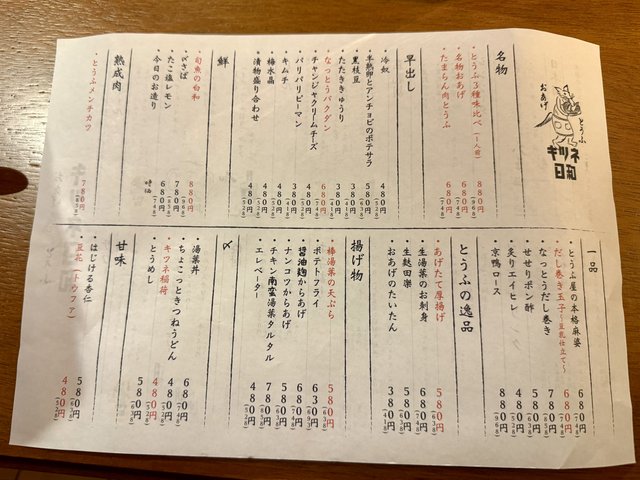 おあげ
とうふ
キツネ
日和
名物
・とうふ3種味比べ(一人前) 880円(968)
・名物おあげ 680円(748)
・たまらん肉とうふ 680円(748)
早出し
・冷奴 480円(528)
・半熟卵とアンチョビのポテサラ 580円(638)
・黒枝豆 380円(418)
・たたききゅうり 380円(418)
・なっとうバクダン 680円(748)
・チャンジャクリームチーズ 480円(528)
・パリパリピーマン 480円(528)
・キムチ 480円(528)
・梅水晶 480円(528)
・漬物盛り合わせ 480円(528)
鮮
・旬魚の白和 880円(968)
・〆さば 780円(858)
・たこ塩レモン 680円(748)
・今日のお造り 時価
熟成肉
・とうふメンチカツ 780円(858)
一品
・とうふ屋の本格麻婆 680円(748)
・だし巻き玉子~豆乳仕立て~ 680円(748)
・なっとうだし巻き 780円(858)
・せせりポン酢 580円(638)
・炙りエイヒレ 480円(528)
・京鴨ロース 880円(968)
とうふの逸品
・あげたて厚揚げ 580円(638)
・生湯葉のお刺身 680円(748)
・生麩田楽 580円(638)
・おあげのたいたん 380円(418)
揚げ物
・棒湯葉の天ぷら 580円(638)
・ポテトフライ 630円
・醤油麹からあげ 680円(748)
・ナンコツからあげ 580円(638)
・チキン南蛮湯葉タルタル 780円(858)
・エレベーター 480円(528)
〆
・湯葉丼 680円(748)
・ちょこっときつねうどん 480円(528)
・キツネ稲荷 480円(528)
・とうめし 580円(638)
甘味
・はじける杏仁 580円(638)
・豆花(トウファ) 480円(528)